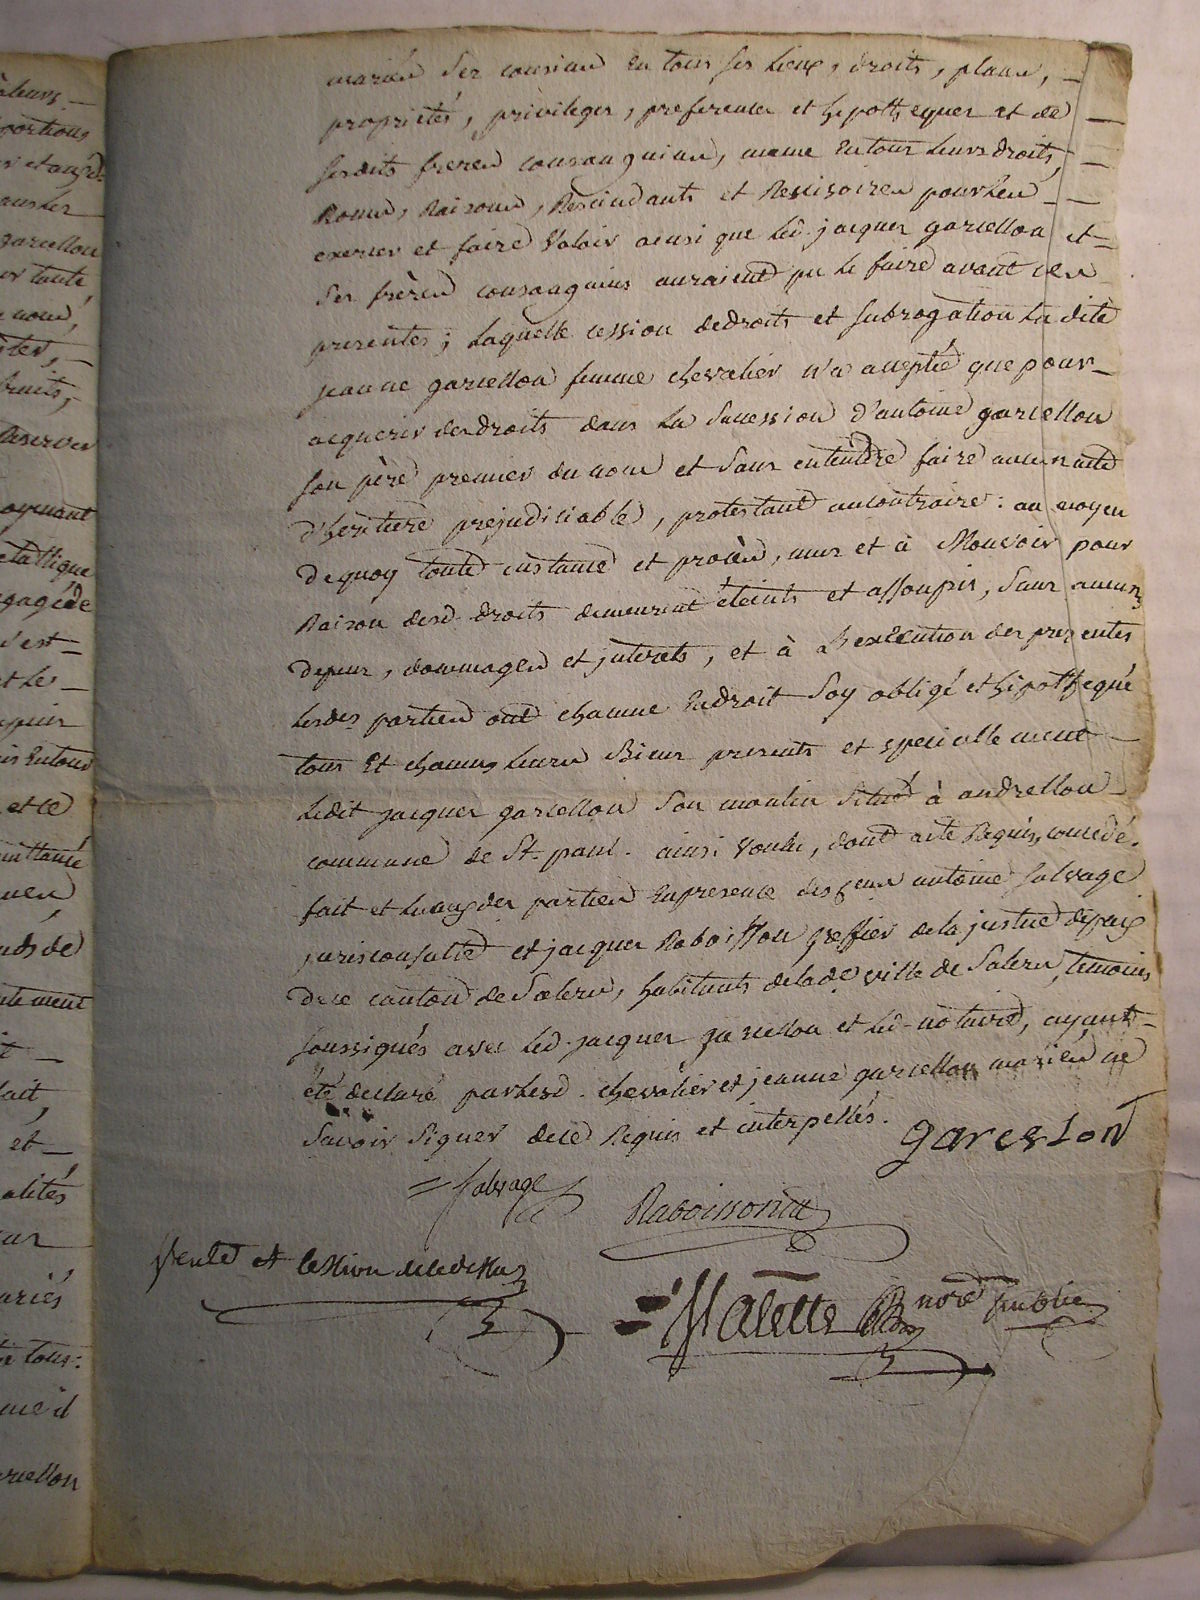 à leurs
portions
garcellon
or toute
nour
fruits,
Réserver
s'est
et Les
et ce
quittance
nds de
it
fait
et
alités
ariés
tous
garcellon
mariés ses cousins en tous ses Lieux, droits, places,
proprietés, privileges, preferences et hipotheques et de
sesdits freres consanguins, meme En tous leurs droits,
Noms, Raisons, Rescindants et Rescisoires pour Les
exercer et faire Valoir ainsi que Led. jacques garcellon et
Ses frères consanguins auraient pu Le faire avant ces
presentes; Laquelle cession de droits et subrogation La dite
jeanne garcellon femme chevalier n'a acceptée que pour
acquerir des droits dans La Succession d'antoine garcellon
son père premier du nom et Sans entendre faire aucun acte
d'heritiere prejudiciable, protestant au contraire: au moyen
de quoy toute instance et procès, mus et à Mouvoir pour
Raison desd. droits demeurent éteints et assoupis, Sans aucuns
depens, dommages et jnterets, et à L'exécution des presentes
Lesdes. parties ont chacune Endroit Soy obligé et hipothequé
tous Et chacuns Leurs Biens presents et specialle ment
Ledit jacques garcellon Son moulin Situé à andrellon
commune de St. paul. ainsi Voulu, dont acte Requis, concedé.
fait et Lu aux des parties En presence des Cens antoine salvage
jurisconsulte et jacques Raboisson greffier de la justice de paix
de ce canton de Salers, habitants de lade. ville de Salers, temoins
soussignés avec Led. jacques garcellon et Led. notaire, ayant
été declaré par Lesd. chevalier et jeanne garcellon mariés ne
Savoir Signer de ce Requis et interpellés.
garcelon
salvage
Raboisson
Vente et cession cidessus
Valette nore public